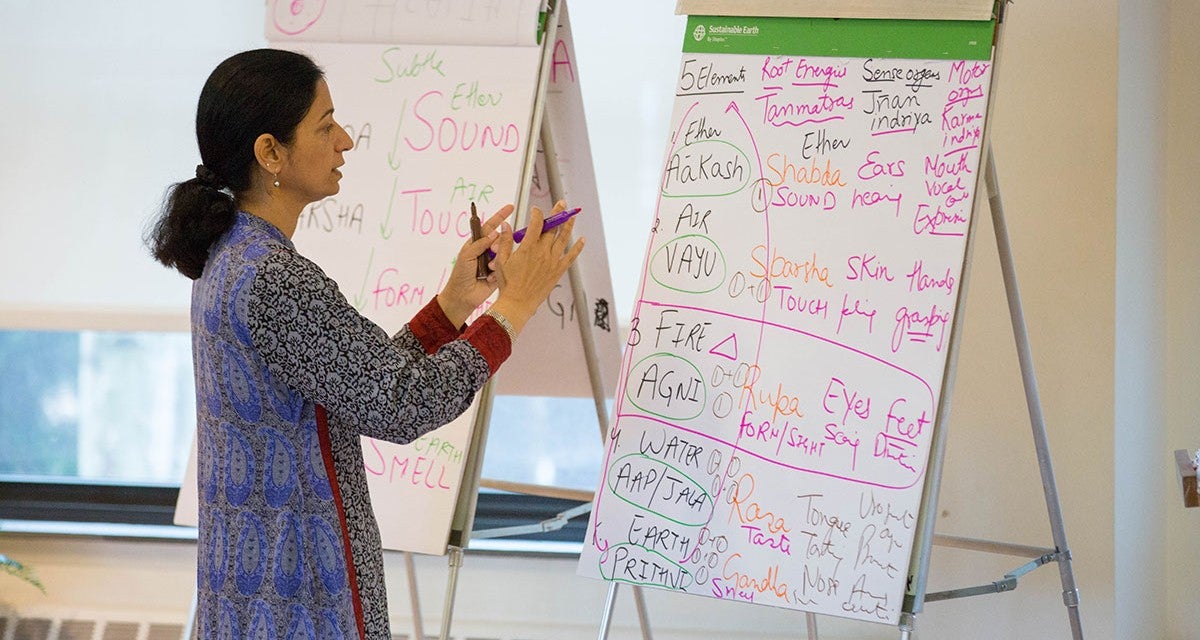 Subtle
Ether
SOUND
AIR
TOUC
ARSHA
FORM/
EARTH
SMELL
Sustainable Earth
By Staples
5 Elements
Root Energies
Tanmatras
Sense organs
Jnan
indriya
Motor
orgs
Karm
indriy
1. Ether
Aākash
Ether
Shabda
SOUND
Ears
Mouth
Vocal
2. AIR
VAYU
Sparsha
TOUCH
Skin
Hands
grasping
3 FIRE
AGNI
Rupa
FORM/SIGHT
Eyes
Feet
4. WATER
AAP/JALA
Rasa
Taste
Tongue
Taste
EARTH
PRITHVI
Gandha
Smell
Nose